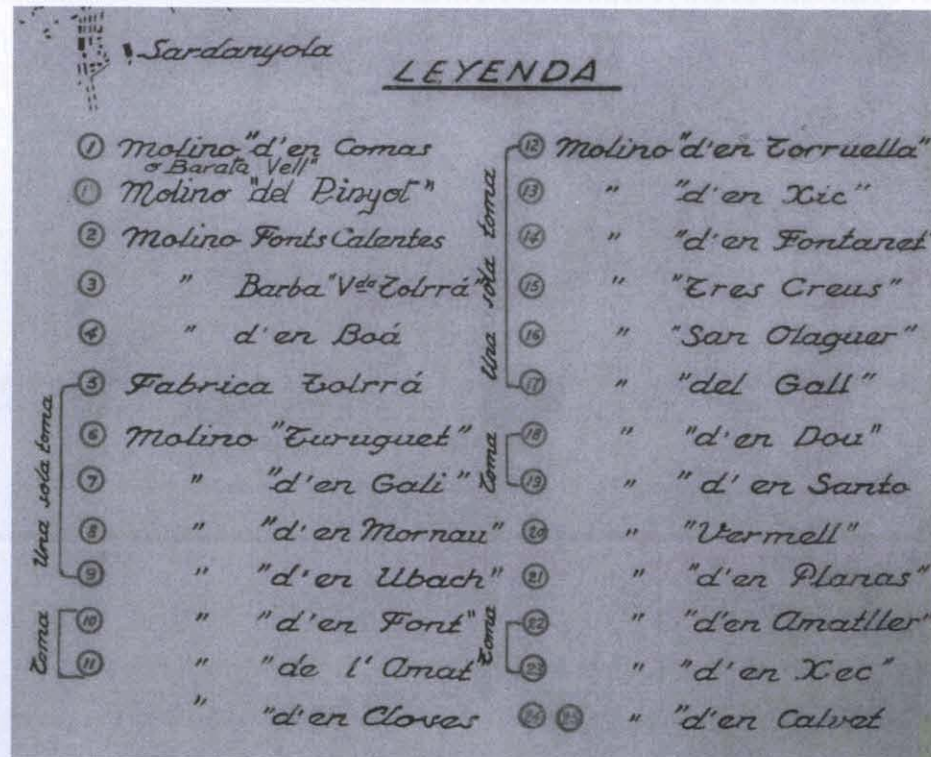 Sardanyola
LEYENDA
1 Molino "d'en Comas
o Barata Vell"
1 Molino "del Pinyot"
2 Molino Fonts Calentes
3 " Barba "Vda Tolrrá"
4 " d'en Boá
5 Fabrica Tolrrá
6 Molino "Turuguet"
7 " "d'en Gali"
8 " "d'en Mornau"
9 " "d'en Ubach"
10 " "d'en Font"
11 " "de l'Amat"
" "d'en Cloves
Una sola toma
Toma
12 Molino "d'en Torruella"
13 " "d'en Xic"
14 " "d'en Fontanet"
15 " "Tres Creus"
16 " "San Olaguer"
17 " "del Gall"
18 " "d'en Dou"
19 " "d'en Santo
20 " "Vermell"
21 " "d'en Planas"
22 " "d'en Amatller"
23 " "d'en Xec"
24 25 " "d'en Calvet
Una sóla toma
Toma
Toma